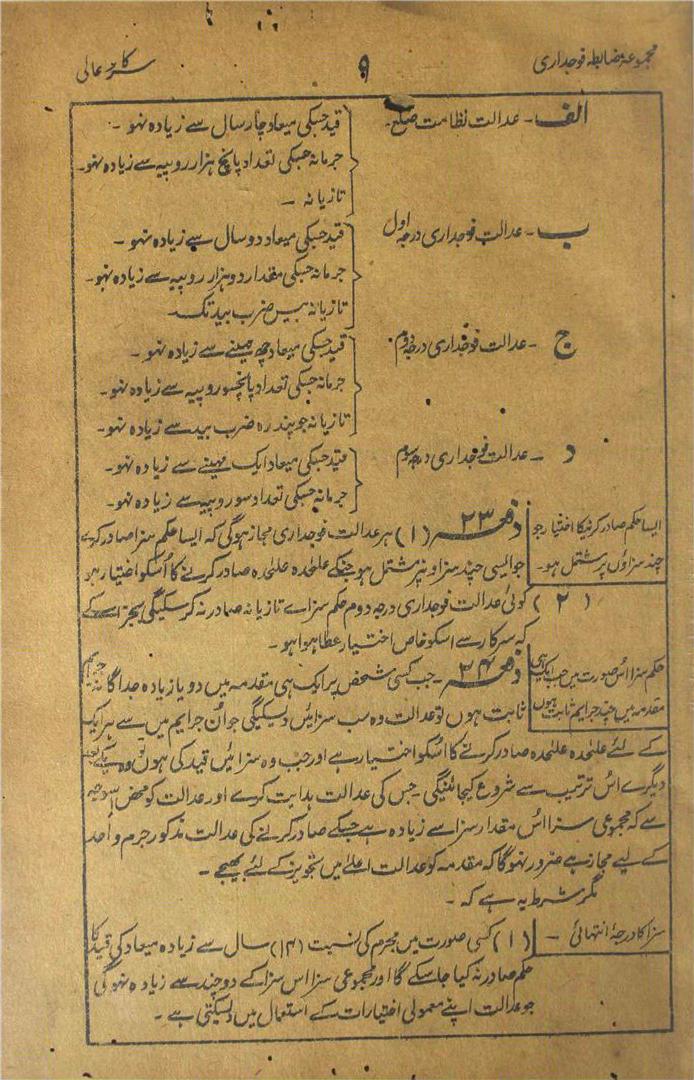 مجموعہ ضابطہ فوجداری
۹
سرکار عالی
الف - عدالت نظامت ضلع -
قید جسکی میعاد چار سال سے زیادہ نہو -
جرمانہ جسکی تعداد پانچ ہزار روپیہ سے زیادہ نہو -
تازیانہ -
ب - عدالت فوجداری درجہ اول
قید جسکی میعاد دو سال سے زیادہ نہو -
جرمانہ جسکی مقدار دو ہزار روپیہ سے زیادہ نہو -
تازیانہ بیس ضرب بید تک
ج - عدالت فوجداری درجہ دوم
قید جسکی میعاد چھ مہینے سے زیادہ نہو -
جرمانہ جسکی تعداد پانچسو روپیہ سے زیادہ نہو -
تازیانہ جو پندرہ ضرب بید سے زیادہ نہو -
د - عدالت فوجداری درجہ سوم
قید جسکی میعاد ایک مہینے سے زیادہ نہو -
جرمانہ جسکی تعداد سو روپیہ سے زیادہ نہو -
ایسا حکم صادر کرنیکا اختیار جو
چند سزاؤں پر مشتمل ہو -
دفعہ ۲۳ (۱) ہر عدالت فوجداری مجاز ہوگی کہ ایسا حکم سزا صادر کرے
جو ایسی چند سزاونپر مشتمل ہو جنکے علٰحدہ علٰحدہ صادر کرنے کا اُسکو اختیار ہو
(۲) کوئی عدالت فوجداری درجہ دوم حکم سزاے تازیانہ صادر نہ کرسکیگی بجز اسکے
کہ سرکار سے اسکو خاص اختیار عطا ہوا ہو -
حکم سزا اُس صورت میں جب ایک ہی
مقدمہ میں چند جرایم ثابت ہوں
دفعہ ۲۴ - جب کسی شخص پر ایک ہی مقدمہ میں دو یا زیادہ جداگانہ جرایم
ثابت ہوں تو عدالت وہ سب سزائیں دیسکیگی جو اُن جرایم میں سے ہر ایک
کے لئے علٰحدہ علٰحدہ صادر کرنے کا اُسکو اختیار ہے اور جب وہ سزائیں قید کی ہوں تو وہ یکے بعد
دیگرے اُس ترتیب سے شروع کیجائینگی - جس کی عدالت ہدایت کرے اور عدالت کو محض اس وجہ
سے کہ مجموعی سزا اُس مقدار سزا سے زیادہ ہے جسکے صادر کرنے کی عدالت مذکور جرم واحد
کے لیے مجاز ہے ضرور نہو گا کہ مقدمہ کو عدالت اعلٰے میں تجویز کے لئے بھیجے -
مگر شرط یہ ہے کہ -
سزا کا درجہ انتہائی -
(۱) کسی صورت میں مجرم کی نسبت (۱۴) سال سے زیادہ میعاد کی قید کا
حکم صادر نہ کیا جاسکے گا اور مجموعی سزا اس سزا کے دو چند سے زیادہ نہوگی
جو عدالت اپنے معمولی اختیارات کے استعمال میں دیسکتی ہے -